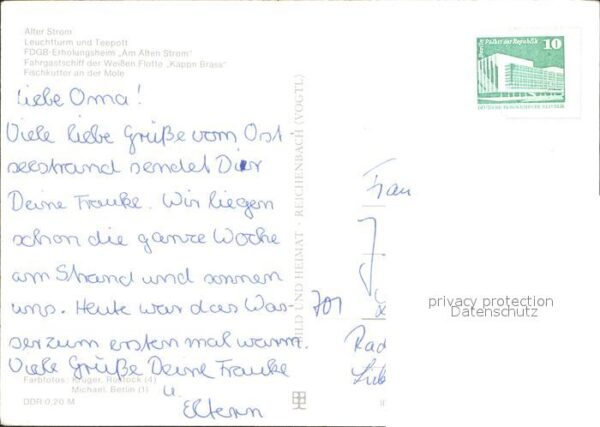 Alter Strom
Leuchtturm und Teepott
FDGB-Erholungsheim „Am Alten Strom"
Fahrgastschiff der Weißen Flotte „Käppn Brass"
Fischkutter an der Mole
Liebe Oma!
Viele liebe Grüße vom Ost
seestrand sendet Dir
Deine Frauke. Wir liegen
schon die ganze Woche
am Strand und sonnen
uns. Heute war das Was-
ser zum ersten mal warm.
Viele Grüße Deine Frauke
u.
Eltern
Farbfotos: Krüger, Rostock (4)
Michael, Berlin (1)
DDR 0,20 M
BILD UND HEIMAT · REICHENBACH (VOGTL)
10
Palast der Republik
Frau
701
Rad
privacy protection
Datenschutz